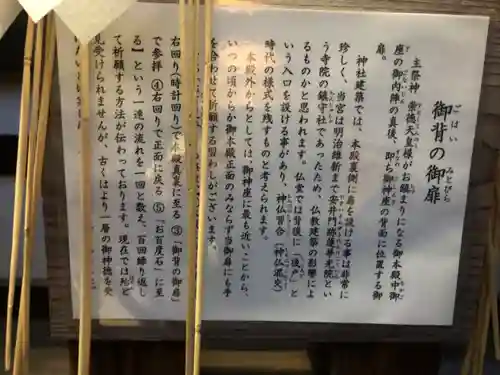 御背の御扉
ごはい
みとびら
主祭神 崇徳天皇様がお鎮まりになる御本殿中御
座の御内陣の真後、即ち御神座の背面に位置する御
扉。
神社建築では、本殿裏側に扉を設ける事は非常に
珍しく、当宮は明治維新まで安井門跡蓮華光院とい
う寺院の鎮守社であったため、仏教建築の影響によ
るものかと思われます。仏堂では背後に「後戸」と
いう入口を設ける事があり、神仏習合(神仏混交)
時代の様式を残すものと考えられます。
本殿外からとしては、御神座に最も近いことから、
いつの頃からか御本殿正面のみならず当御扉にも手
を合わせて祈願する習わしがございます。
右回り(時計回り)で本殿真裏に至る③「御背の御扉」
で参拝 ④右回りで正面に戻る ⑤「お百度石」に至
る】という一連の流れを一回と数え、百回繰り返し
て祈願する方法が伝わっております。現在では殆ど
見受けられませんが、古くはより一層の御神徳を戴